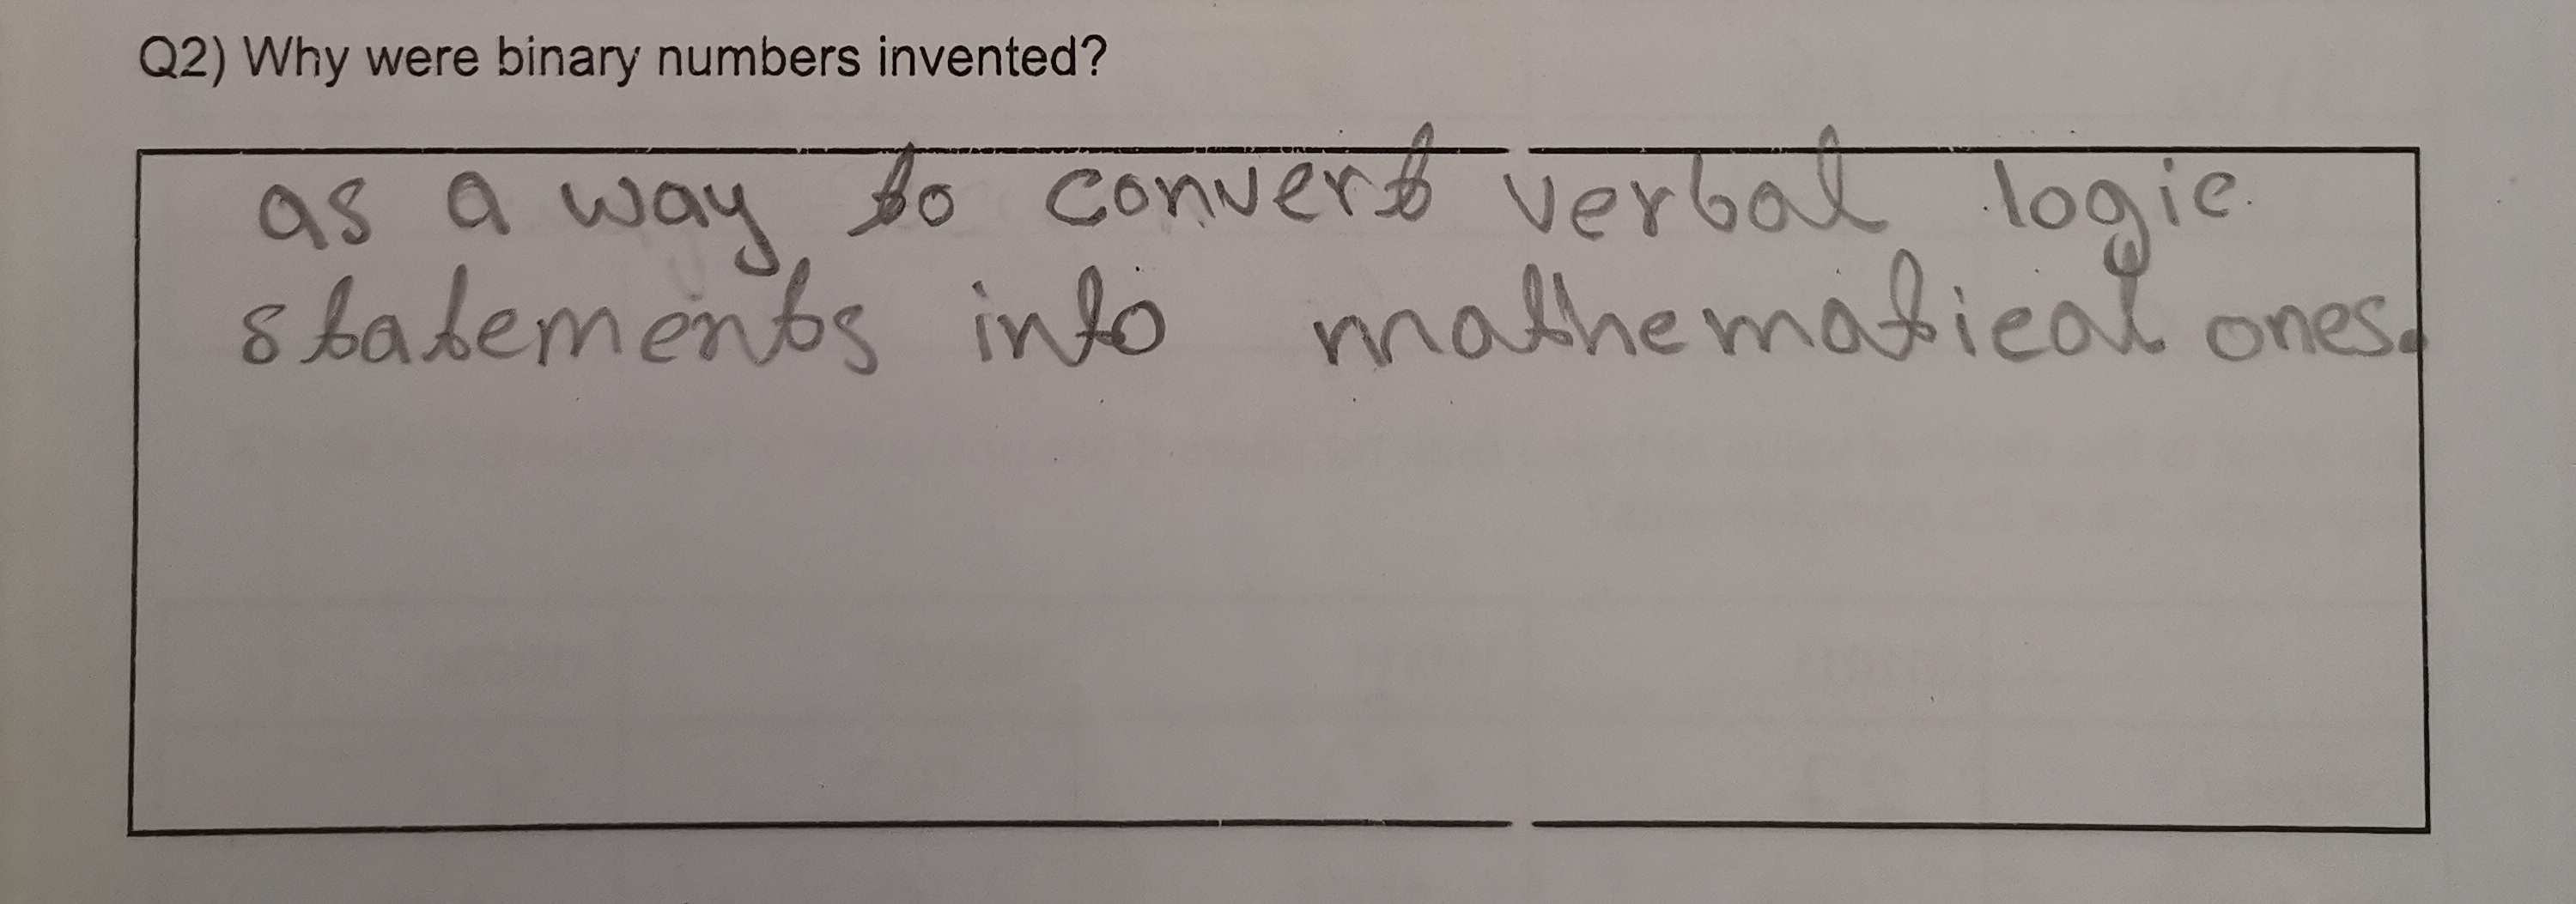 Q2) Why were binary numbers invented?
as a way to convert verbal logic
statements into mathematical ones.